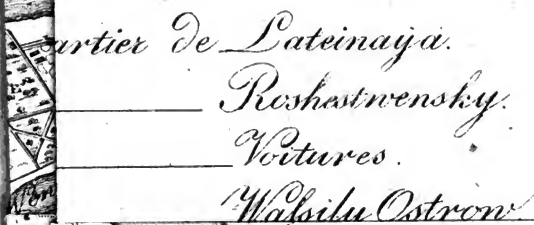 artier de Lateinaija.
Roshestwensky.
Voitures.
Wassily Ostrow.